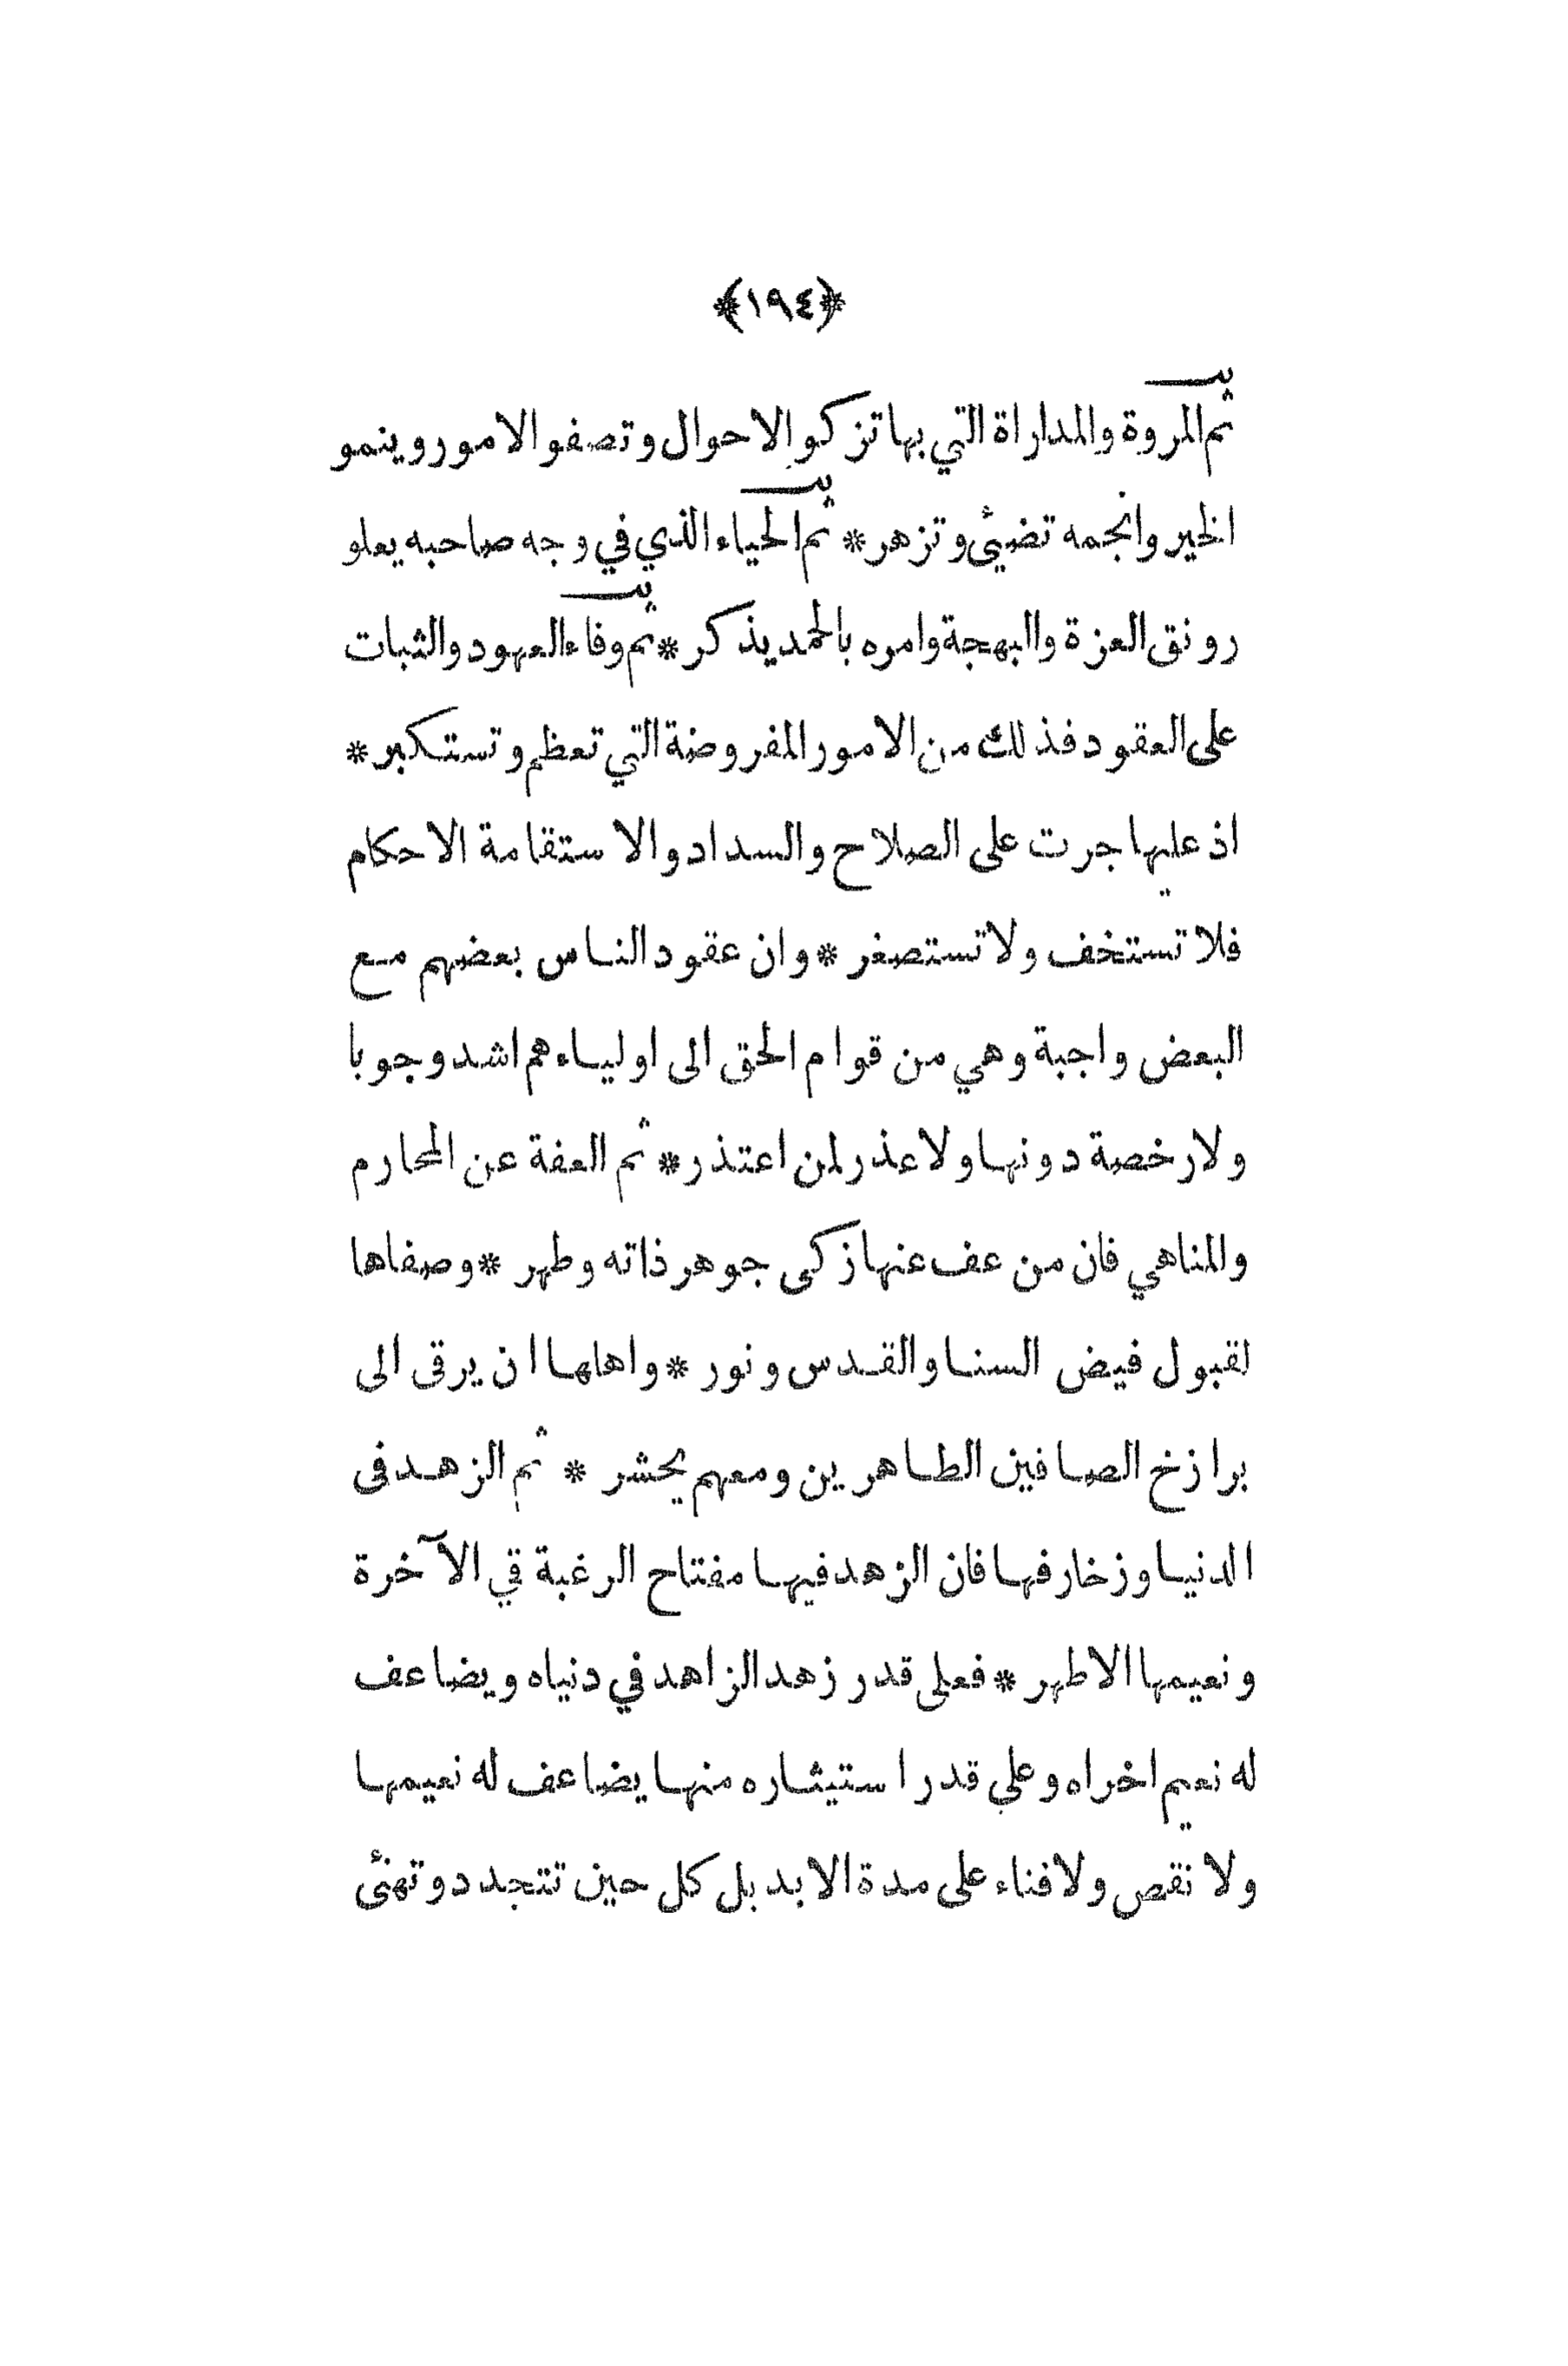 ﴿١٩٤﴾
ثم المروة والمداراة التي بها تزكو الاحوال وتصفو الامور وينمو
الخير وانجمه تضيئ وتزهر * ثم الحياء الذي في وجه صاحبه يعلو
رونق العزة والبهجة وامره بالحمد يذكر * ثم وفاء العهود والثبات
على العقود فذلك من الامور المفروضة التي تعظم وتستكبر *
اذ عليها جرت على الصلاح والسداد والاستقامة الاحكام
فلا تستخف ولا تستصغر * وان عقود الناس بعضهم مع
البعض واجبة وهي من قوام الحق الى اولياءهم اشد وجوبا
ولا رخصة دونها ولا عذر لمن اعتذر * ثم العفة عن المحارم
والمناهي فان من عف عنها زكى جوهر ذاته وطهر * وصفاها
لقبول فيض السنا والقدس ونور * واهلها ان يرقى الى
برازخ الصافين الطاهرين ومعهم يحشر * ثم الزهد فى
الدنيا وزخارفها فان الزهد فيها مفتاح الرغبة في الآخرة
ونعيمها الاطهر * فعلى قدر زهد الزاهد في دنياه ويضاعف
له نعيم اخراه وعلى قدر استيثاره منها يضاعف له نعيمها
ولا نقص ولا فناء على مدة الابد بل كل حين تتجدد وتهنئ